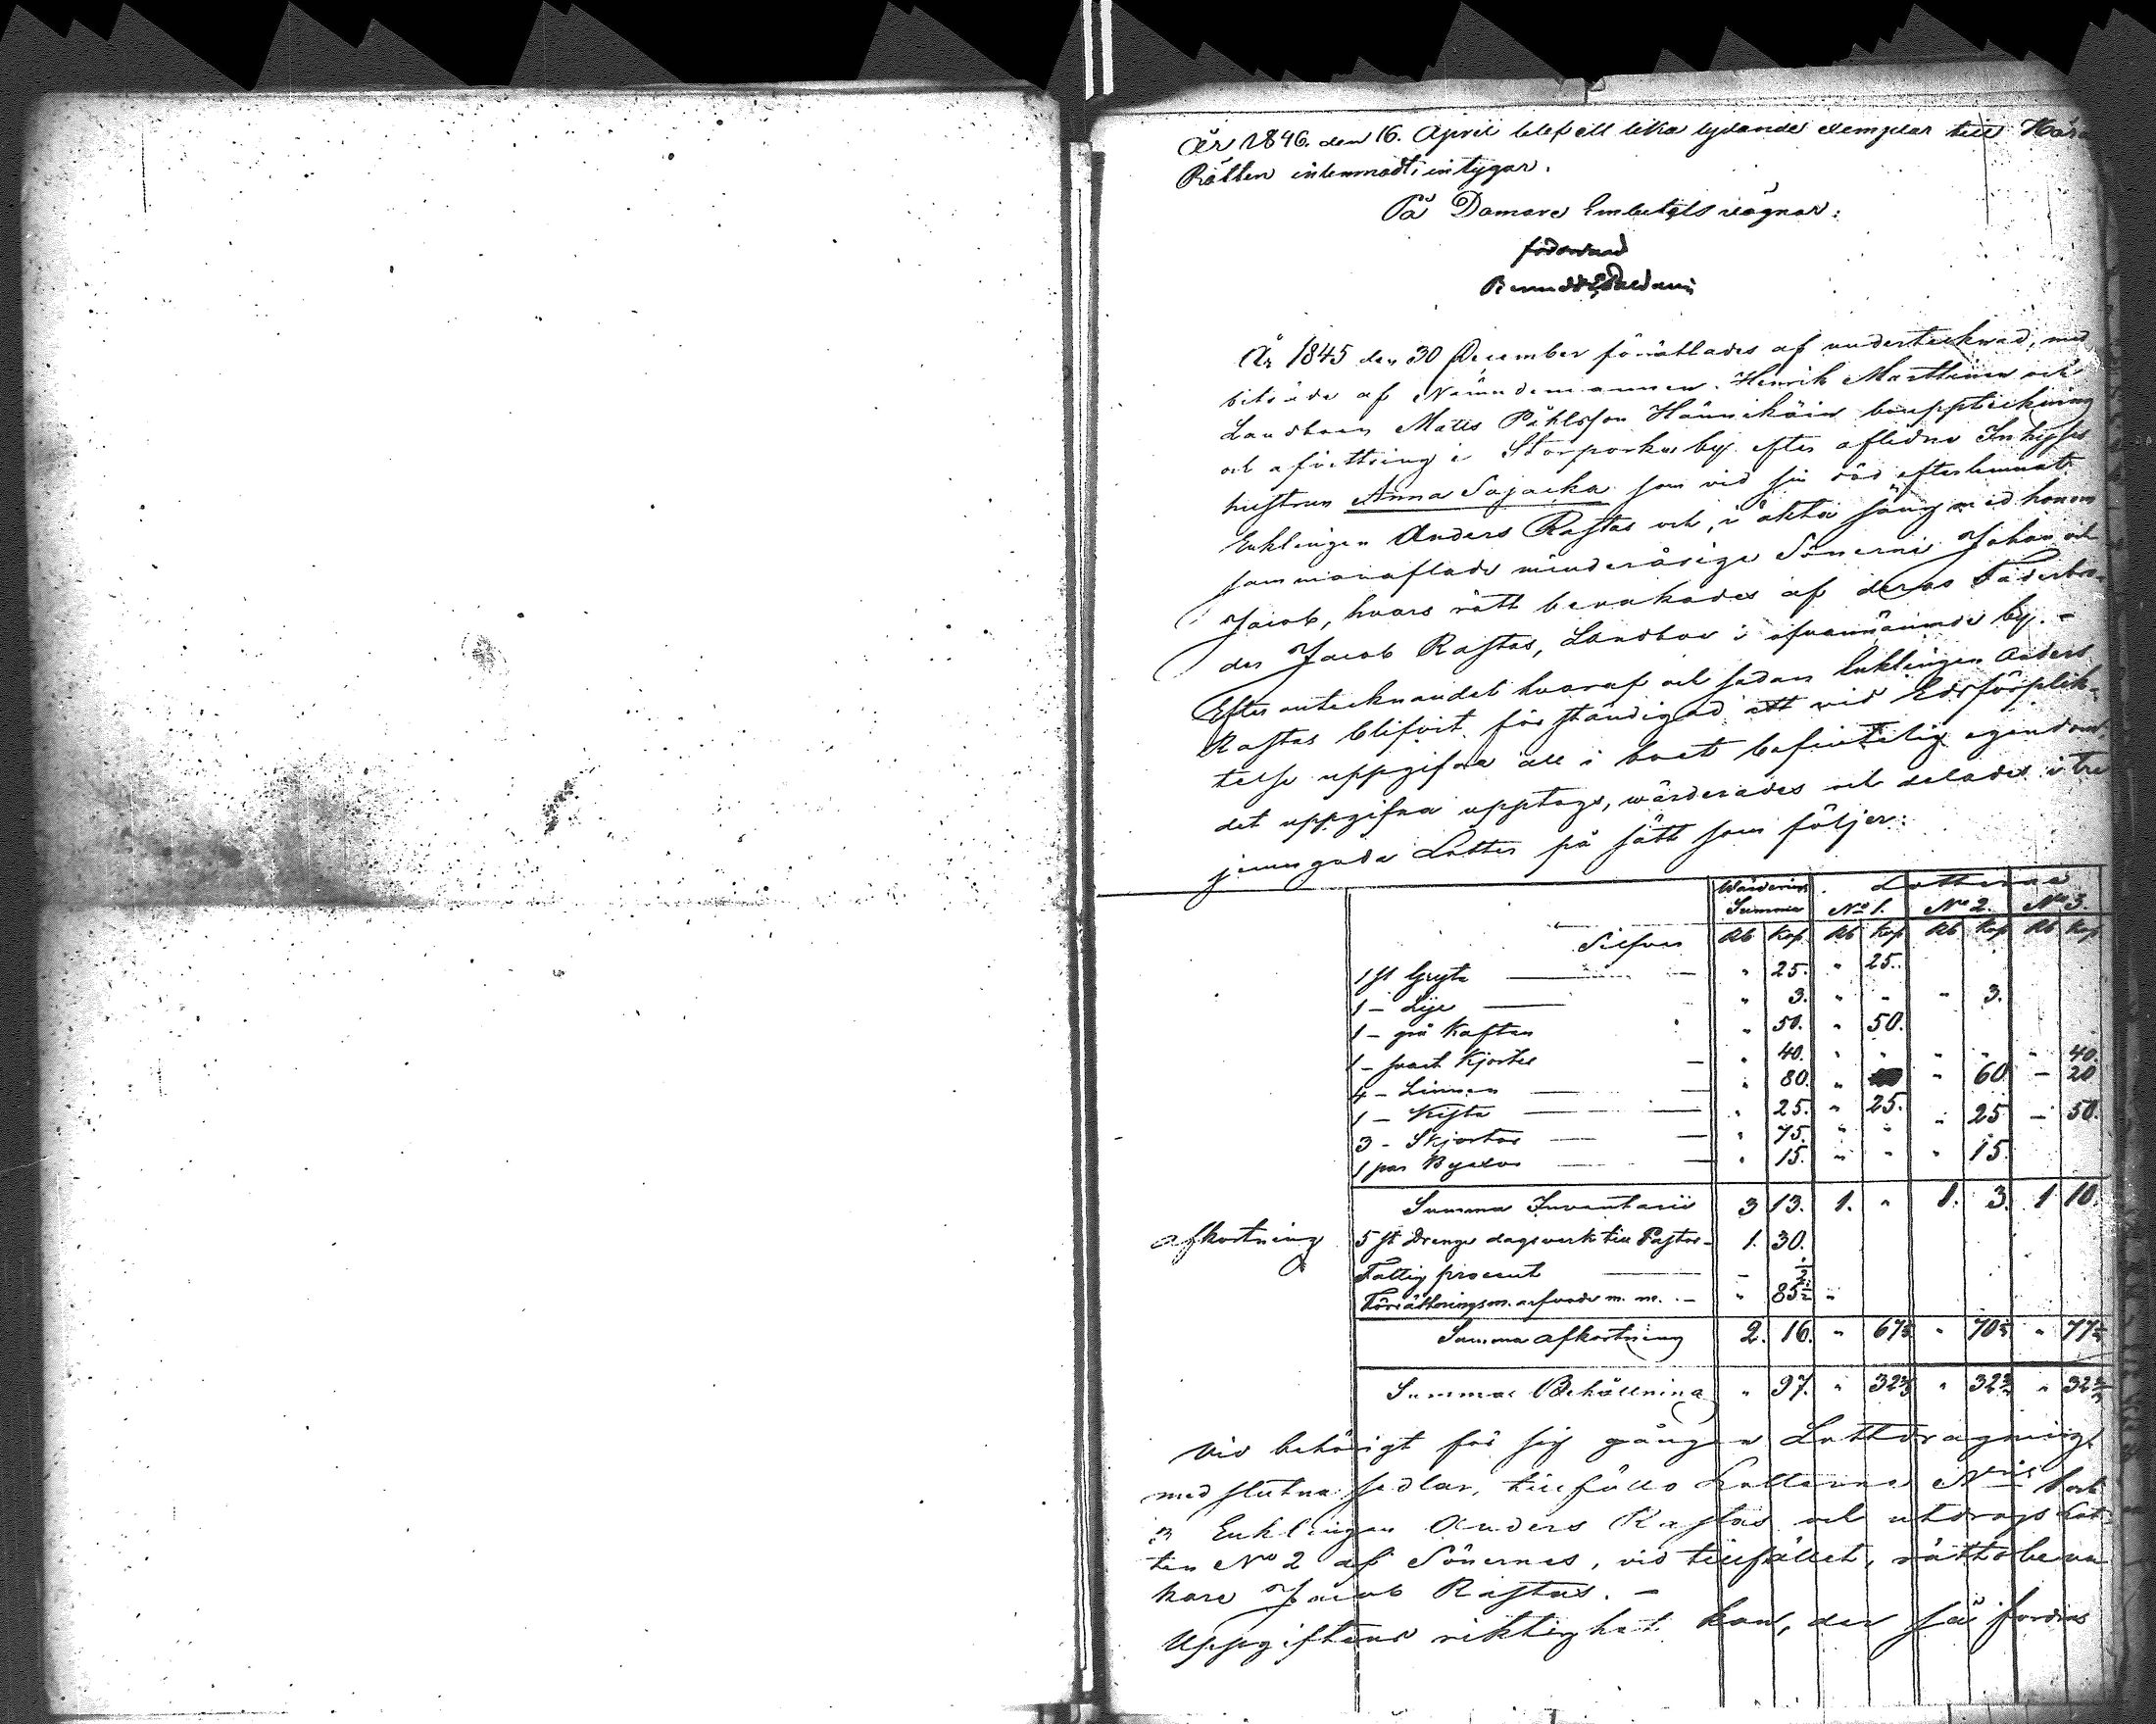 År 1846. den 16. April blef ett lika lydande exemplar till Härads
Rätten inlemnadt, intygar.
På Domare Embetets vägnar:
År 1845 den 30 December förrättades af undertecknad, med
biträde af Nämndemannen Henrik Marttinen och
Landboen Matts Påhlsson Hännikäin bouppteckning
och afvittring i Storporkas by efter aflidne Inhyses
hustrun Anna Sojacka som vid sin död efterlemnat
Enklingen Anders Rastas och, i äkta säng med honom
sammanaflade minderårige Sönerne Johan och
Jacob, hvars rätt bevakades af deras Faderbro-
der Jacob Rastas, Landboe i ofvannämnde by. -
Efter antecknandet hvaraf och sedan Enklingen Anders
Rastas blifvit förständigad att vid Edsförplik-
telse uppgifva all i boet befintelig egendom,
det uppgifna upptogs, wärderades och delades i tre
jemngoda Lotter på sätt som följer:
Wärderings Lotterne
Summa No 1. No 2. No 3.
Silfver Rb Kop Rb Kop Rb Kop Rb Kop
1 st Gryta — " 25. " 25.
1 - Lije — " 3. " - " 3.
1 - grå Kaftan " 50. " 50.
1 - svart Kjortel — " 40. " " " - - 40.
4 - Linnen — " 80. " " 60 - 20
1 - Kista — " 25. " 25.
3 - Skjortor — " 75. " " " 25 - 50.
1 par Byxor — " 15. " - " 15.
Summa Inventarii 3 13. 1. " 1. 3. 1 10.
afkortning 5 st Drengs dagsverk till Pastor - 1. 30.
Fattig procent — - ½
Förrättningsm. arfvode m. m. - " 85½ "
Summa afkortning 2. 16. " 67⅓ " 70⅓ " 77⅓
Summa Behållning " 97. " 32⅔ " 32⅔ " 32⅔
Vid behörigt för sig gången Lottdragning
med slutna sedlar, tillföllo Lotterne Nris 1 och
3 Enklingen Anders Rastas och utdrogs Lot-
ten No 2 af Sönernes, vid tillfället, rättsbeva-
kare Jacob Rastas. -
Uppgiftens riktighet kan, der så fordras